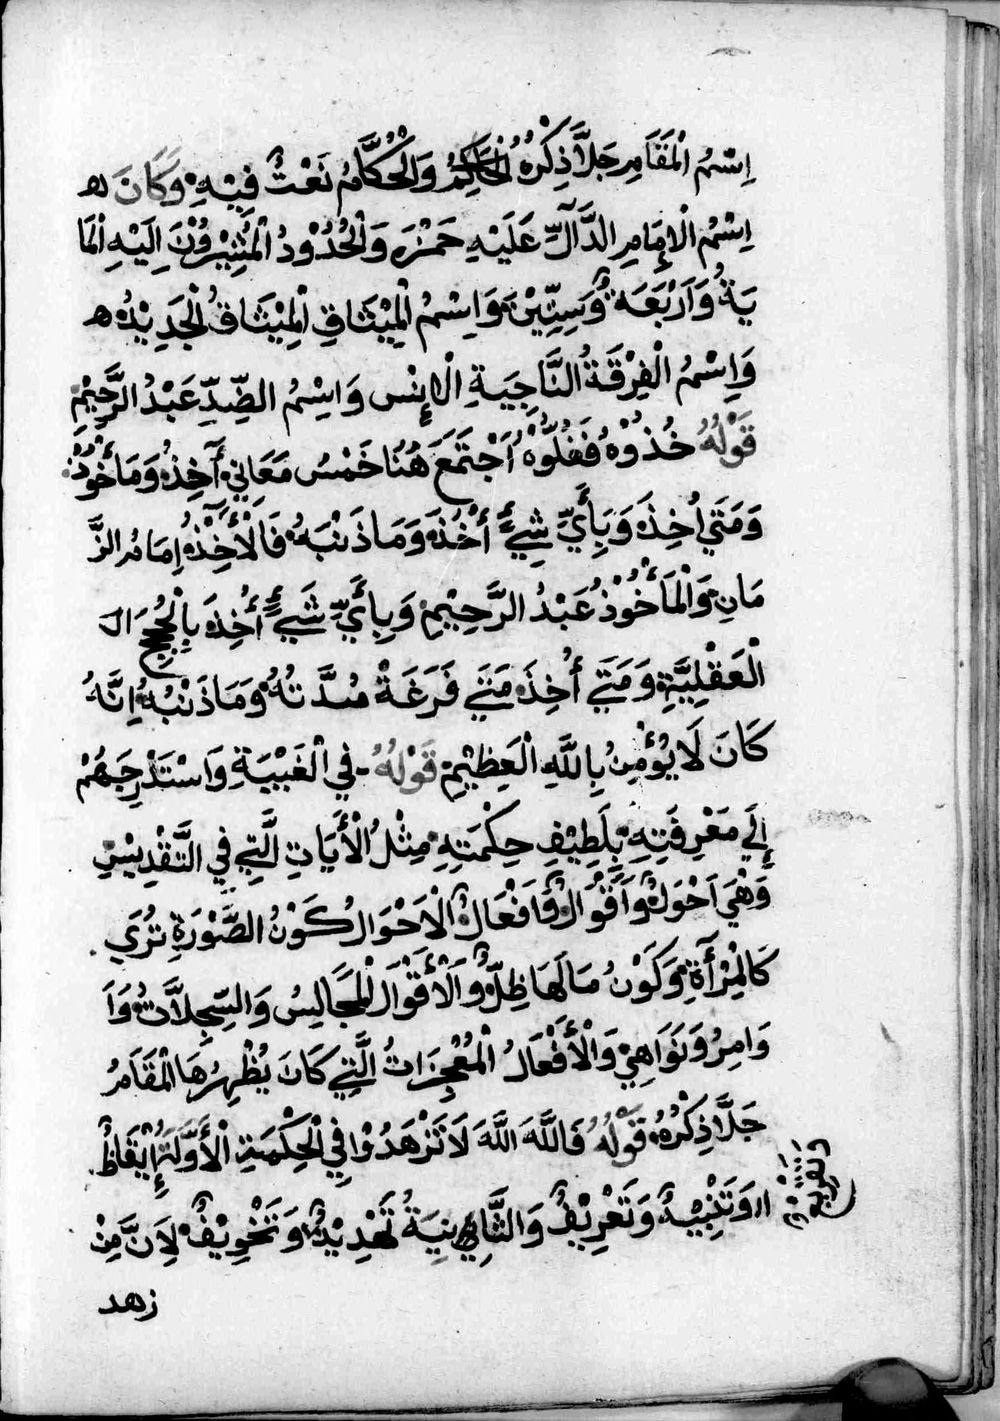 اِسْمُ الْمَقَامِ جَلَّا ذِكْرُهُ الْحَاكِمُ وَالْحُكَّامُ نَعْتٌ فِيْهِ وَكَانَ ه
اِسْمُ الْاِمَامِ الدَّآلِّ عَلَيْهِ حَمْزَه وَالْحُدُوْدُ الْمُشِيْرُوْنَ اِلَيْهِ الْمَا
يَةُ وَاَرْبَعَةٌ وَسِتِّيْنَ وَاِسْمُ الْمِيْثَاقِ الْمِيْثَاقُ الْجَدِيْدُ ه
وَاِسْمُ الْفِرْقَةُ النَّاجِيَةِ الْاِنْس وَاسِْمُ الضِّدِّ عَبْدُ الرَّحِيْمِ
قَوْلُهُ خُذُوْهُ فَغُلُّوْهُ اَجْتَمَعَ هُنَا خَمْسُ مَعَانِي آخِذُ وَمَأْخُوْذٌ
وَمَتَي اُخِذَ وَبِأَيِّ شِيءٍ أُخْذَ وَمَا ذَنْبَهُ فَالْأَخِذُ اِمَامُ الزَّ
مَانِ وَالْمَأْخُوْذُ عَبْدُ الرَّحِيْمِ وَبِأَيِّ شَيءٍ أُخِذَ بِالْحُجَجِ ال
الْعَقْلِيَّةِ وَمَتَي أُخِذَ مَتَي فَرَغَةْ مُدَّتُهُ وَمَا ذَنْبُهُ اِنَّهُ
كَانَ لَا يُؤْمِنُ بِاللَّهِ الْعَظِيْمِ قَوْلُهُ فِي الْغَيْبَةِ وَاسْتَدْرِجَهُمْ
اِلَي مَعْرِفَتِهِ بِلَطِيْفِ حِكْمَتِهِ مِثْلُ الْأَيَاتِ الَّتِي فِي التَّقْدِيْسِ
وَهْيَ اَحْوَلٌ وَاَقْوَالٌ وَاَفْعَالٌ الْاَحْوَالُ كَوْنُ الصُّوْرَةِ تُرَي
كَالْمِرْأَةِ وَكَوْنُ مَا لَهَا ظِلٌّ وَالْأَقْوَالُ الْمَجَالِيسُ وَالسِّجِلَّاتُ وَاَ
وَامِرُ وَنَوَاهِيْ وَالْأَفْعَالُ الْمُعْجِزَاتُ الَّتِي كَانَ يُظْهِرُهَا الْمَقَامُ
جَلَّا ذِكْرُهُ قَوْلُهُ فَاللَّهَ اللَّهَ لَا تَزْهَدُوْا فِي الْحِكْمَةِ الْأَوَّلَةُ اِيْقَاظٌ
وَتَنْبِيْهٌ وَتَعْرِيْفٌ وَالثَّانِيَةُ تَهْدِيْدٌ وَتَخْوِيْفٌ لِاَنَّ مَنْ
زهد